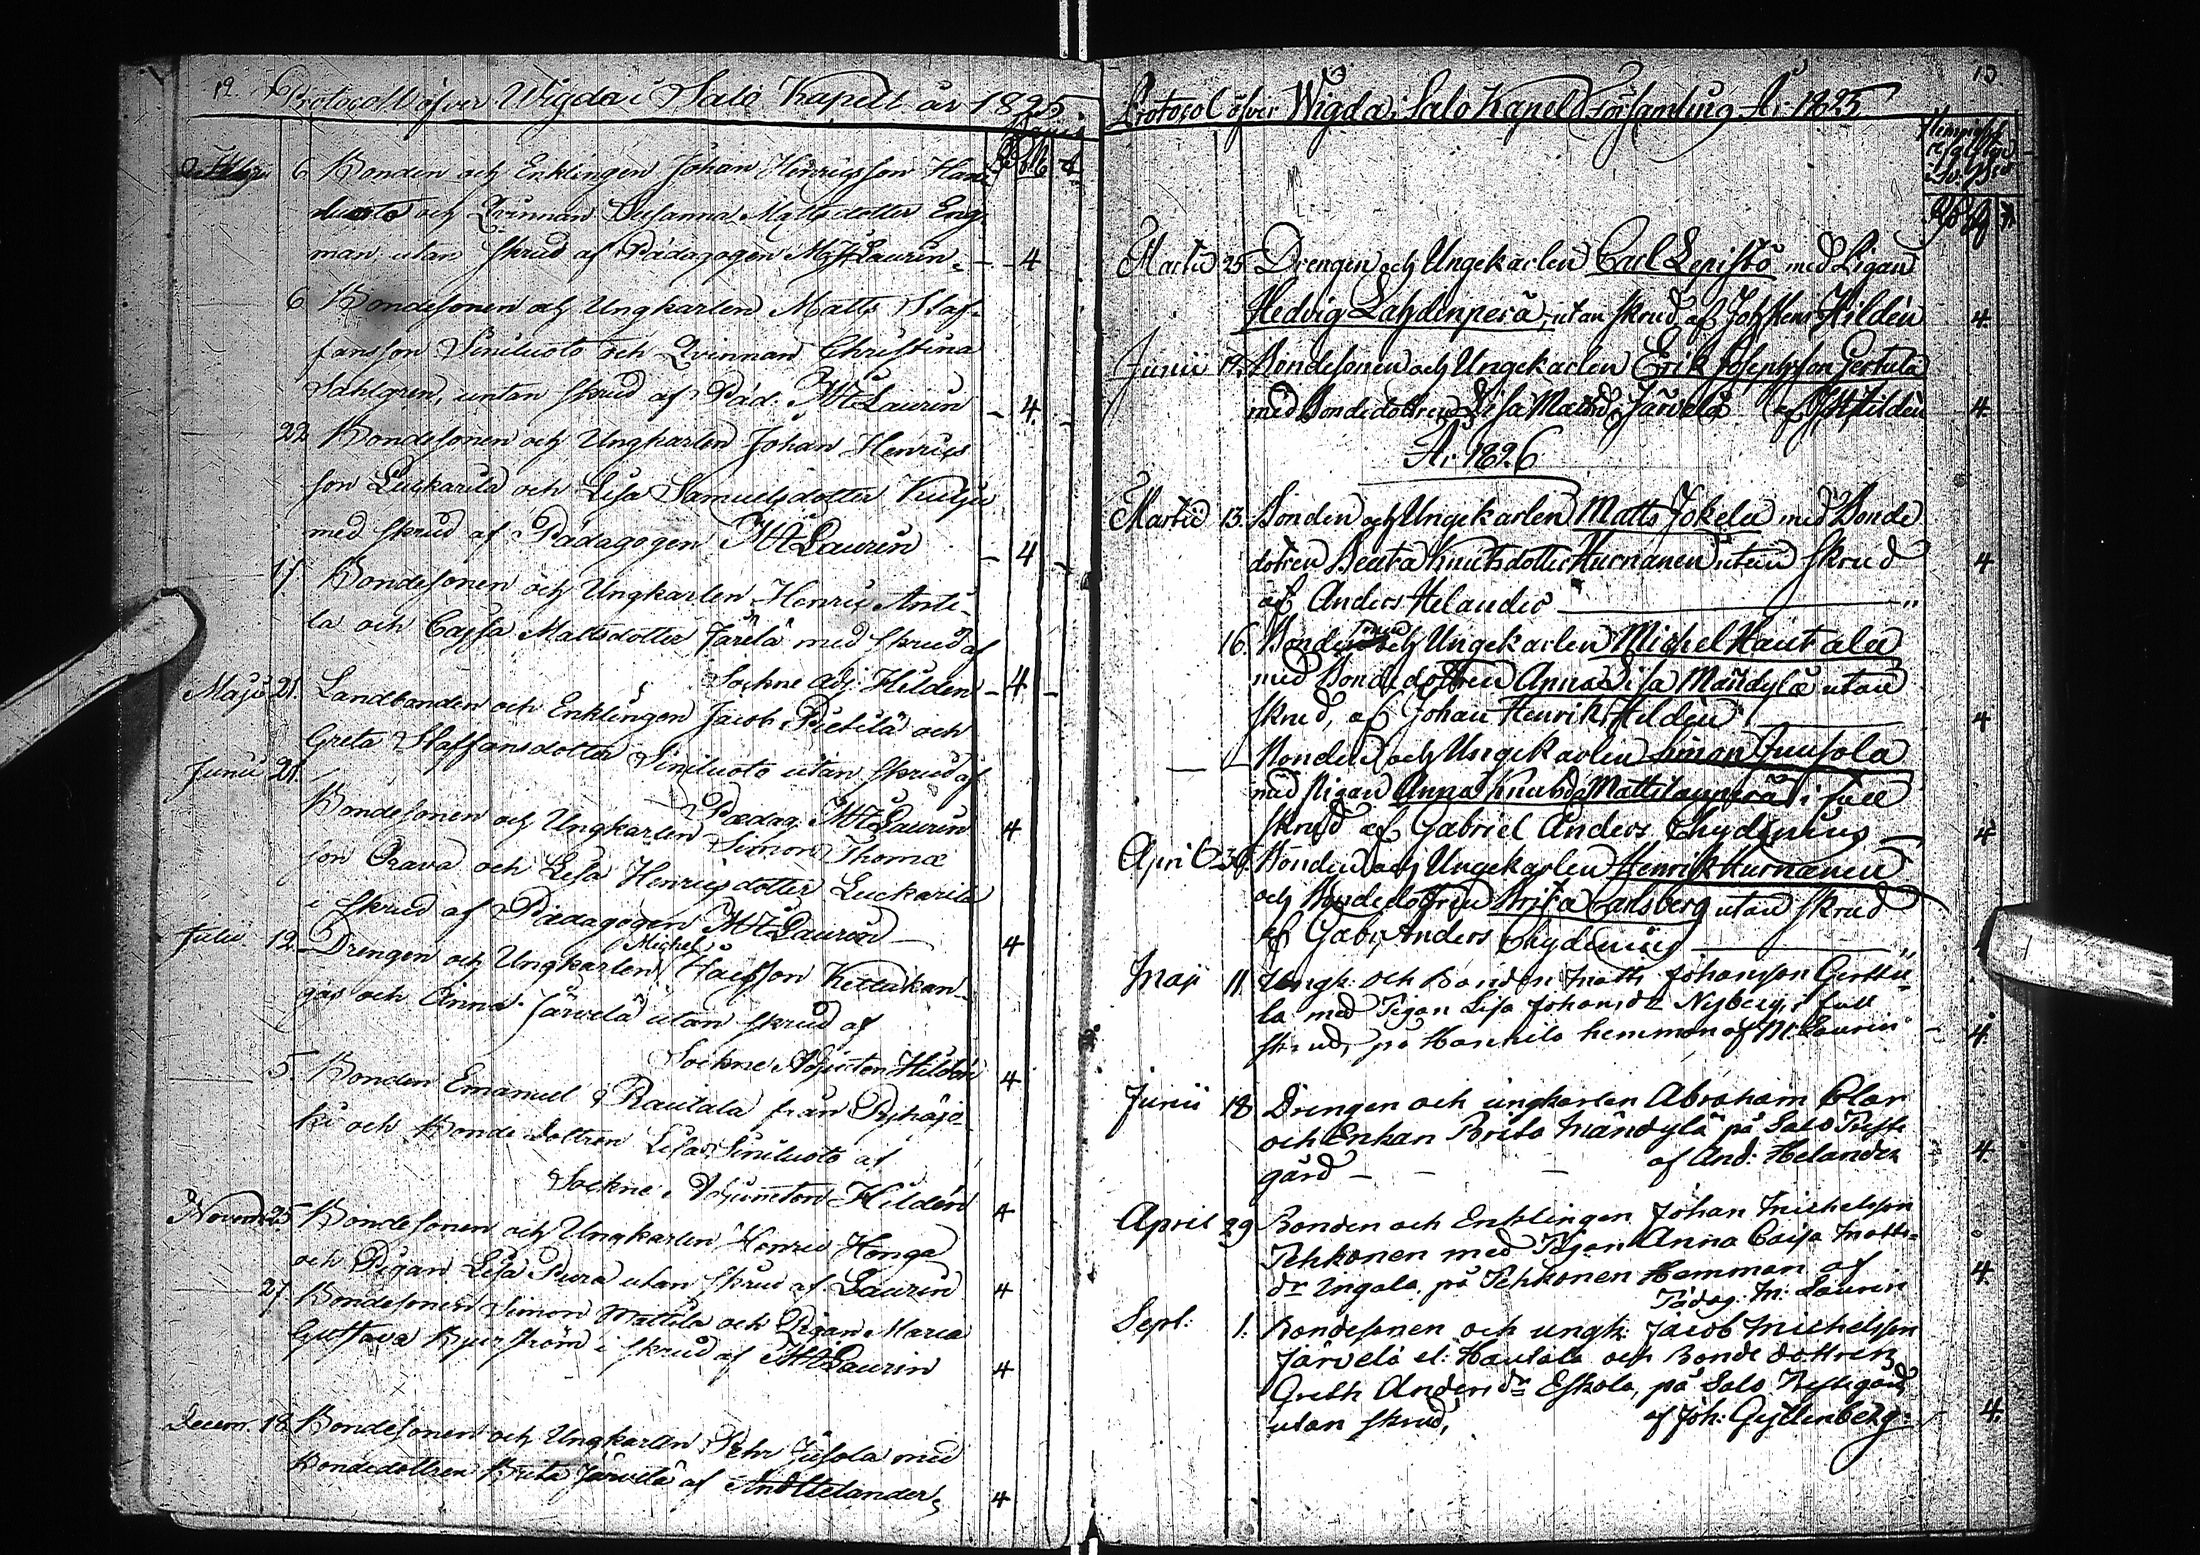 12.
Protocoll öfver Wigda i Salo Kapell år 1825
6. Bonden och Enklingen Johan Henricsson
och Qvinnan Susanna Mattsdotter Eng-
man utan skrud af Pädagogen M Laurin. - 4
6 Bondesonen och Ungkarlen Matts Staf-
fansson Siniluoto och Qvinnan Christina
Sahlgren, untan skrud af Päd. Mt Laurin - 4. -
22 Bondesonen och Ungkarlen Johan Henrics
son Luckarila och Lisa Samuelsdotter
med skrud af Pädagogen Mt Laurin - 4 -
17. Bondesonen och Ungkarlen Henric Anti-
la och Cajsa Mattsdotter Järelä med skrud af
Sockne Adj: Hilden - 4 -
Maji 21. Landbonden och Enklingen Jacob Pietilä och
Greta Staffansdotter Siniluoto utan skrud af
Pædag. Mt Laurin 4
Junii 21. Bondesonen och Ungkarlen Simon Thomæ
son Orava och Lisa Henricsdotter Luckarila
i skrud af Pädagogen Mt Laurin 4
Julii 12. Drengen och Ungkarlen Michel Isacsson Kettukan-
gas och Anna Järvelä utan skrud af
Sockne Adjuncten Hildén 4
5. Bonden Emanuel Rautala från Pyhäjo-
ki och Bonde dottren Lisa Siniluoto af
Sockne Adjuncten Hildén 4
Novem: 25 Bondesonen och Ungkarlen Henric Honga
och Pigan Lisa Pera utan skrud af Laurin 4
27 Bondesonen Simon Mattila och Pigan Maria
Gustava Bjurström i skrud af Mt Laurin 4
Decem. 18. Bondesonen och Ungkarlen Pehr Jusola med
Bondedottren Brita Järvelä af And Helander 4
13
Protocol öfver Wigda i Salo Kapel Församling År 1825
Martii 25 Drengen och Ungekarlen Carl Lepistö med Pigan
Hedvig Lahdenperä, utan skrud af Joh Hen: Hildén 4.
Junii 19. Bondesonen och Ungekarlen Erik Josephsson Gertula
med Bondedottren Lisa Järvelä af Hildén 4
År 1826
Martii 13. Bonden och Ungekarlen Matts Jokela med Bonde
dotren Beata Knutsdotter Hurnanen utan skrud 4
af Anders Helander "
16. Bonden och Ungekarlen Michel Hautala
med Bondedottren Anna Lisa Mändylä utan
skrud, af Johan Henrik Hildén 4
— Bonden och Ungekarlen Simon Juusola
med Pigan Anna Knutsdr Mattilanperä i full
skrud af Gabriel Anders Chydenius 4
April 30 Bonden och Ungekarlen Henrik Hurnanen
och Bondedottren Brita Carlsberg utan skrud
af Gabr. Anders Chydenius "
Maji 11. Ungk: och Bonden Matts Johansson Gertu-
la med Pigan Lisa Johansdr Nyberg, i full
skrud, på Hannila hemman af M. Laurin - 4.
Junii 18 Drengen och ungkarlen Abraham Clar
och Enkan Brita Mändylä på Salo Prest
gård - - - af And: Helander 4.
April 29 Bonden och Enklingen Johan Michelsson
Pehkonen med Pigan Anna Caisa Matts-
dr Ungala, på Pehkonen Hemman af 4.
Pädag: M: Laurin
Sept: 1. Bondesonen och ungk: Jacob Michelsson
Järvelä el: Hautala och Bonde dottren
Greth Andersdr Eskola, på Salo Prestegård,
utan skrud, af Joh: Gyllenberg: 4.